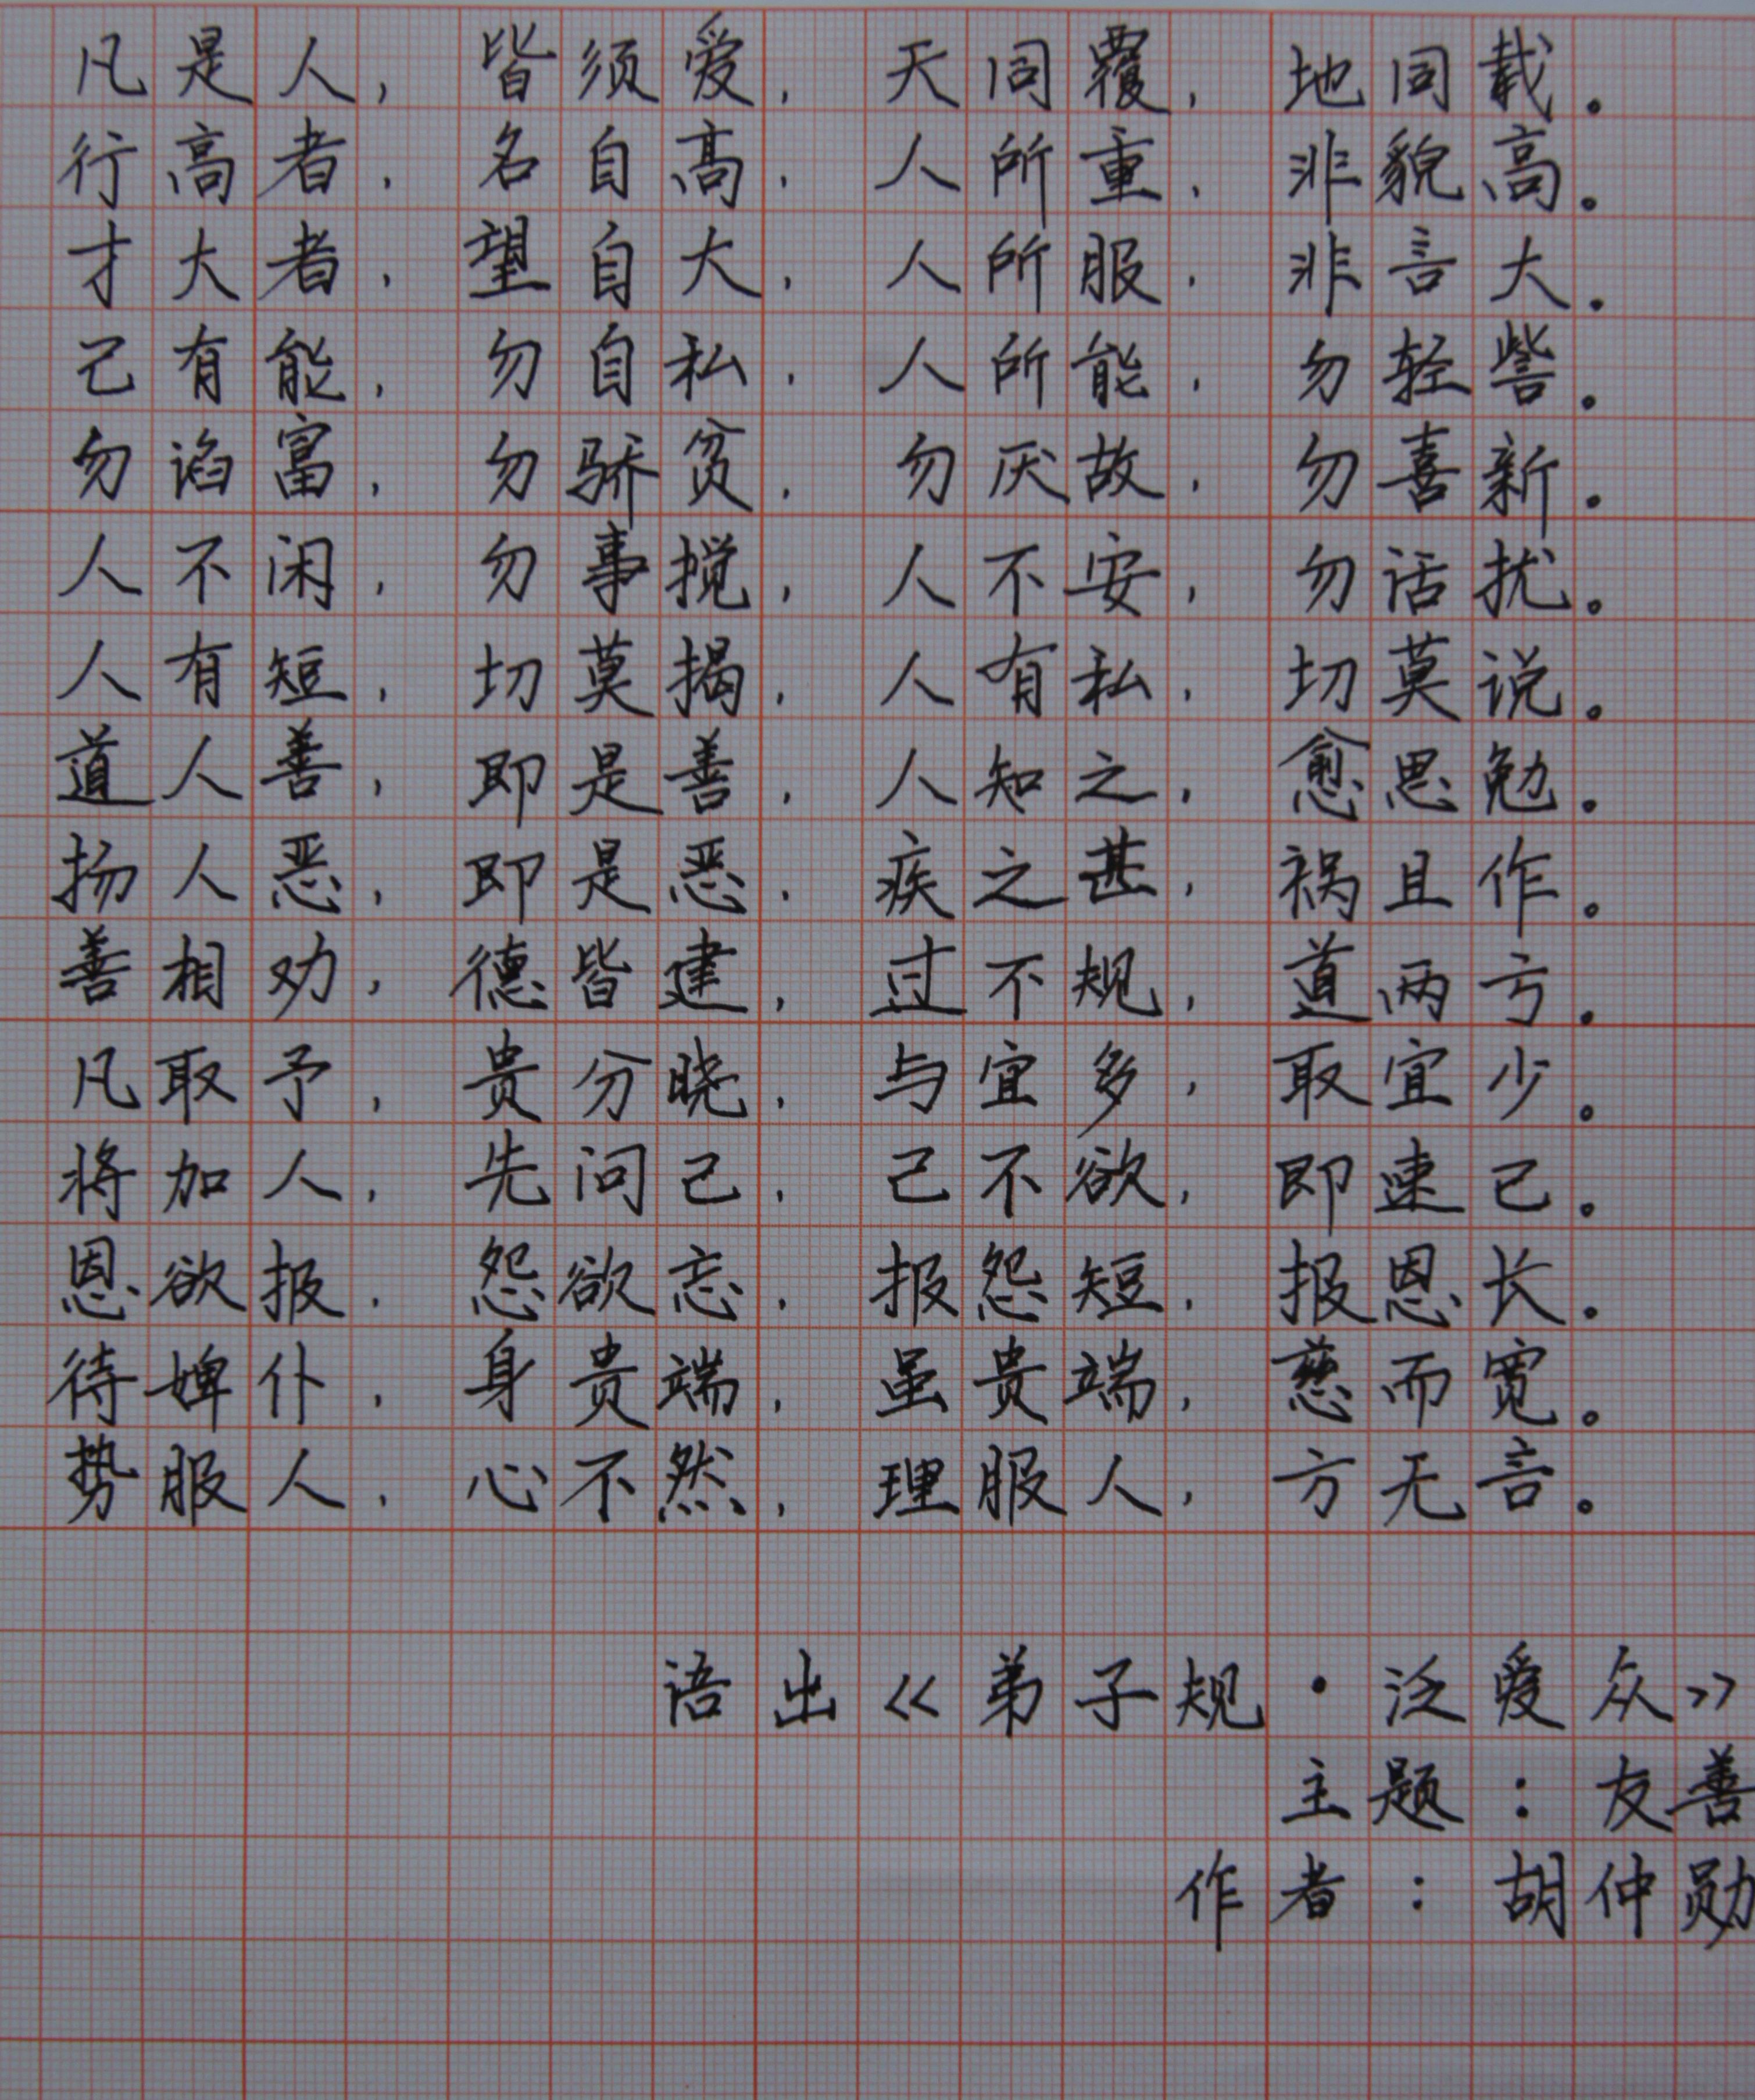 凡是人，皆须爱，天同覆，地同载。
行高者，名自高，人所重，非貌高。
才大者，望自大，人所服，非言大。
己有能，勿自私，人所能，勿轻訾。
勿谄富，勿骄贫，勿厌故，勿喜新。
人不闲，勿事搅，人不安，勿话扰。
人有短，切莫揭，人有私，切莫说。
道人善，即是善，人知之，愈思勉。
扬人恶，即是恶，疾之甚，祸且作。
善相劝，德皆建，过不规，道两亏。
凡取予，贵分晓，与宜多，取宜少。
将加人，先问己，己不欲，即速已。
恩欲报，怨欲忘，报怨短，报恩长。
待婢仆，身贵端，虽贵端，慈而宽。
势服人，心不然，理服人，方无言。
语出《弟子规·泛爱众》
主题：友善
作者：胡仲勋